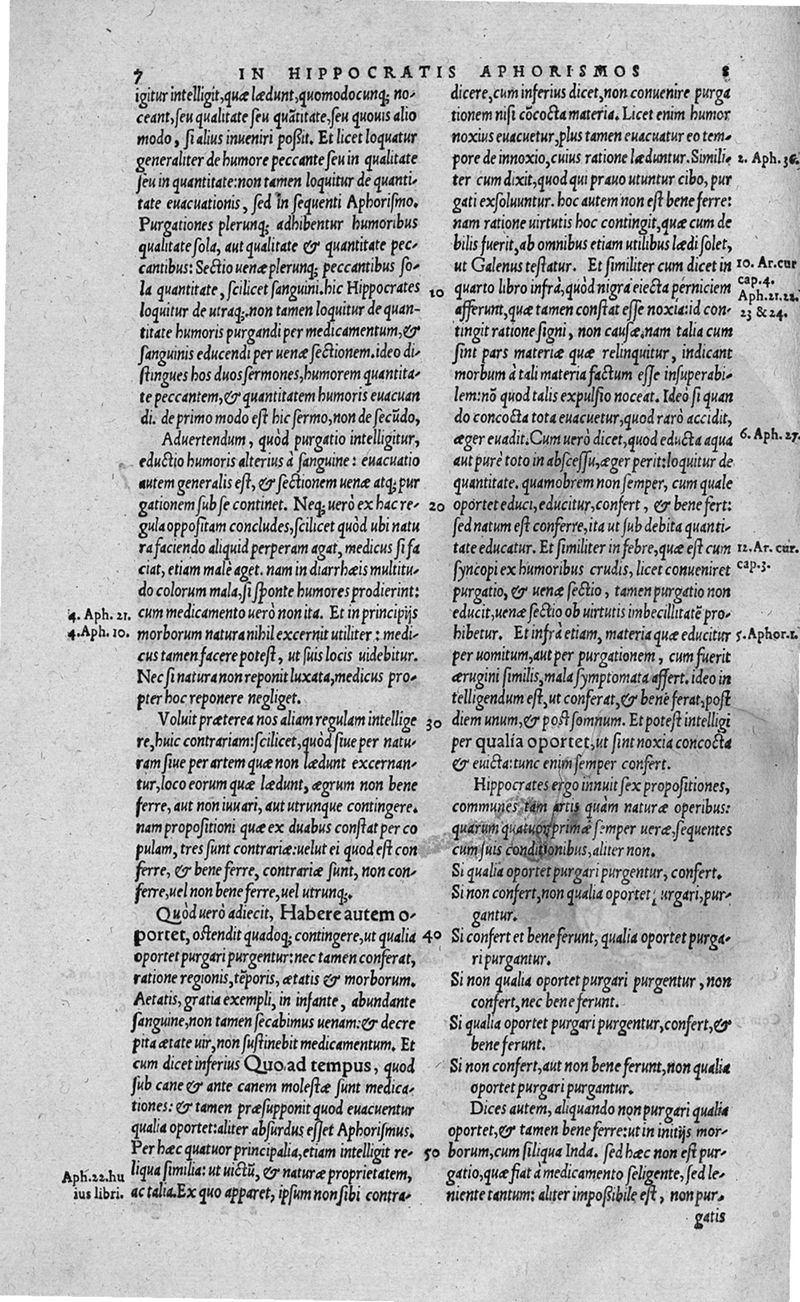 7 IN HIPPOCRATIS APHORISMOS 8
igitur intelligit, quæ lædunt, quomodocunq; no-
ceant, seu qualitate seu quãtitate, seu quouis alio
modo, si alius inueniri poßit. Et licet loquatur
generaliter de humore peccante seu in qualitate
seu in quantitate: non tamen loquitur de quanti-
tate euacuationis, sed in sequenti Aphorismo.
Purgationes plerunq; adhibentur humoribus
qualitate sola, aut qualitate & quantitate pec-
cantibus: Sectio uenæ plerunq; peccantibus so-
la quantitate, scilicet sanguini. hic Hippocrates
loquitur de utraq;. non tamen loquitur de quan-
titate humoris purgandi per medicamentum, &
sanguinis educendi per uenæ sectionem. ideo di-
stingues hos duos sermones, humorem quantita-
te peccantem, & quantitatem humoris euacuan
di. de primo modo est hic sermo, non de secũdo,
Aduertendum, quòd purgatio intelligitur,
eductio humoris alterius à sanguine: euacuatio
autem generalis est, & sectionem uenæ atq; pur
gationem sub se continet. Neq; uerò ex hac re-
gula oppositam concludes, scilicet quòd ubi natu
ra faciendo aliquid perperam agat, medicus si fa
ciat, etiam malè aget. nam in diarrhæis multitu-
do colorum mala, si sponte humores prodierint:
cum medicamento uerò non ita. Et in principijs
morborum natura nihil excernit utiliter: medi-
cus tamen facere potest, ut suis locis uidebitur.
Nec si natura non reponit luxata, medicus pro-
pter hoc reponere negliget.
Voluit præterea nos aliam regulam intellige
re, huic contrariam: scilicet, quòd siue per natu-
ram siue per artem quæ non lædunt excernan-
tur, loco eorum quæ lædunt, ægrum non bene
ferre, aut non iuuari, aut utrunque contingere.
nam propositioni quæ ex duabus constat per co
pulam, tres sunt contrariæ: uelut ei quod est con
ferre, & bene ferre, contrariæ sunt, non con-
ferre, uel non bene ferre, uel utrunq;.
Quòd uerò adiecit, Habere autem o-
portet, ostendit quãdoq; contingere, ut qualia
oportet purgari purgentur: nec tamen conferat,
ratione regionis, tẽporis, ætatis & morborum.
Aetatis, gratia exempli, in infante, abundante
sanguine, non tamen secabimus uenam: & decre
pita ætate uir, non sustinebit medicamentum. Et
cum dicet inferius Quo ad tempus, quod
sub cane & ante canem molestæ sunt medica-
tiones: & tamen præsupponit quod euacuentur
qualia oportet: aliter absurdus esset Aphorismus.
Per hæc quatuor principalia, etiam intelligit re-
liqua similia: ut uictũ, & naturæ proprietatem,
ac talia. Ex quo apparet, ipsum non sibi contra-
4. Aph. 21.
4. Aph. 10.
Aph. 22. hu
ius libri.
10
20
30
40
50
dicere, cum inferius dicet, non conuenire purga
tionem nisi cõcocta materia. Licet enim humor
noxius euacuetur, plus tamen euacuatur eo tem-
pore de innoxio, cuius ratione læduntur. Simili-
ter cum dixit, quod qui prauo utuntur cibo, pur
gati exsoluuntur. hoc autem non est bene ferre:
nam ratione uirtutis hoc contingit, quæ cum de
bilis fuerit, ab omnibus etiam utilibus lædi solet,
ut Galenus testatur. Et similiter cum dicet in
quarto libro infrà, quòd nigra eiecta perniciem
afferunt, quæ tamen constat esse noxia: id con-
tingit ratione signi, non causæ. nam talia cum
sint pars materiæ quæ relinquitur, indicant
morbum à tali materia factum esse insuperabi-
lem: nõ quod talis expulsio noceat. Ideò si quan
do concocta tota euacuetur, quod rarò accidit,
æger euadit. Cum uerò dicet, quod educta aqua
aut pure toto in abscessu, æger perit: loquitur de
quantitate. quamobrem non semper, cum quale
oportet educi, educitur, confert, & bene fert:
sed natum est conferre, ita ut sub debita quanti-
tate educatur. Et similiter in febre, quæ est cum
syncopi ex humoribus crudis, licet conueniret
purgatio, & uenæ sectio, tamen purgatio non
educit, uenæ sectio ob uirtutis imbecillitatẽ pro-
hibetur. Et infrà etiam, materia quæ educitur
per uomitum, aut per purgationem, cum fuerit
ærugini similis, mala symptomata affert. ideo in
telligendum est, ut conferat, & bene ferat, post
diem unum, & post somnum. Et potest intelligi
per qualia oportet, ut sint noxia concocta
& euicta: tunc enim semper confert.
Hippocrates ergo innuit sex propositiones,
communes tam artis quàm naturæ operibus:
quarum quatuor primæ semper ueræ, sequentes
cum suis conditionibus, aliter non.
Si qualia oportet purgari purgentur, confert.
Si non confert, non qualia oportet purgari, pur-
gantur.
Si confert et bene ferunt, qualia oportet purga-
ri purgantur.
Si non qualia oportet purgari purgentur, non
confert, nec bene ferunt.
Si qualia oportet purgari purgentur, confert, &
bene ferunt.
Si non confert, aut non bene ferunt, non qualia
oportet purgari purgantur.
Dices autem, aliquando non purgari qualia
oportet, & tamen bene ferre: ut in initijs mor-
borum, cum siliqua Inda. sed hæc non est pur-
gatio, quæ fiat à medicamento seligente, sed le-
niente tantum: aliter impoßibile est, non pur-
gatis
2. Aph. 36.
10. Ar. cur
cap. 4.
Aph. 21. 22.
23 & 24.
6. Aph. 27.
12. Ar. cur.
cap. 3.
5. Aphor. 1.